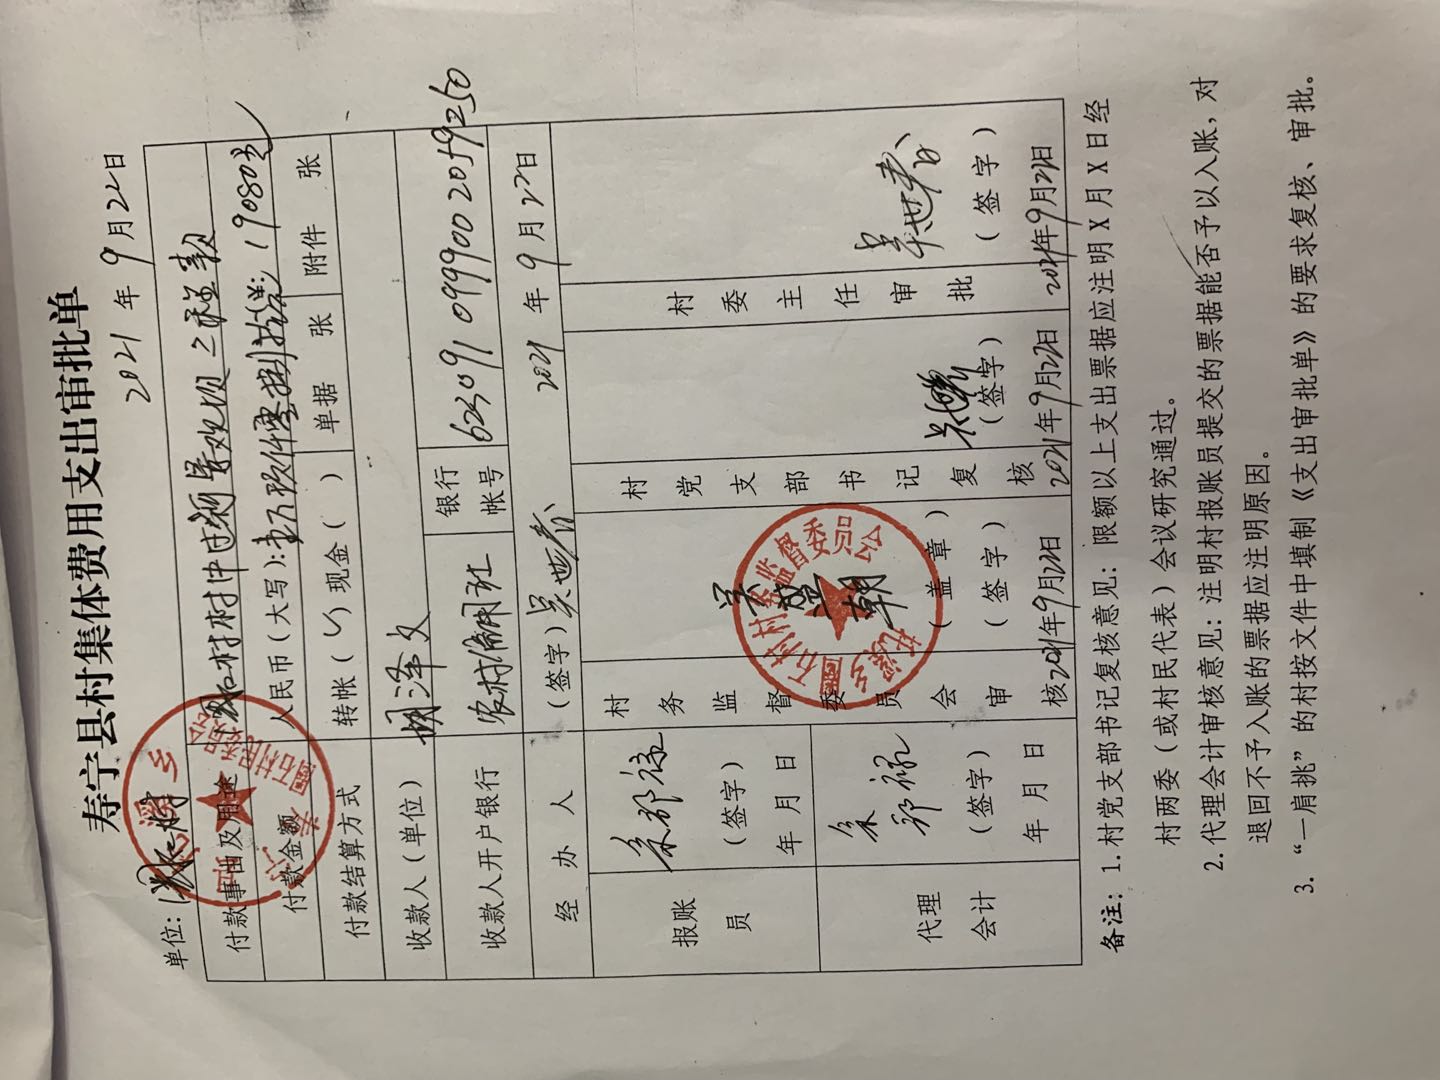 寿宁县村集体费用支出审批单
2021 年 9 月 22 日
单位:
付款事由及用途 村村中 景观坝 工程款
付款金额 人民币(大写): 壹万玖仟零捌拾 19080元 单据 张 附件 张
付款结算方式 转帐(√)现金( )
收款人(单位) 周泽文
收款人开户银行 农村信用社 银行帐号 623091 099900 2059250
经办人 (签字) 吴世春 2021 年 9 月 22日
报账员 (签字) 年 月 日
代理会计 (签字) 年 月 日
村务监督委员会审核 (盖章) (签字) 2021年9月22日
村党支部书记复核 (签字) 2021年9月22日
村委主任审批 吴世春 (签字) 2021年9月22日
村务监督委员会
托溪乡
备注: 1.村党支部书记复核意见:限额以上支出票据应注明X月X日经
村两委(或村民代表)会议研究通过。
2.代理会计审核意见:注明村报账员提交的票据能否予以入账,对
退回不予入账的票据应注明原因。
3.“一肩挑”的村按文件中填制《支出审批单》的要求复核、审批。